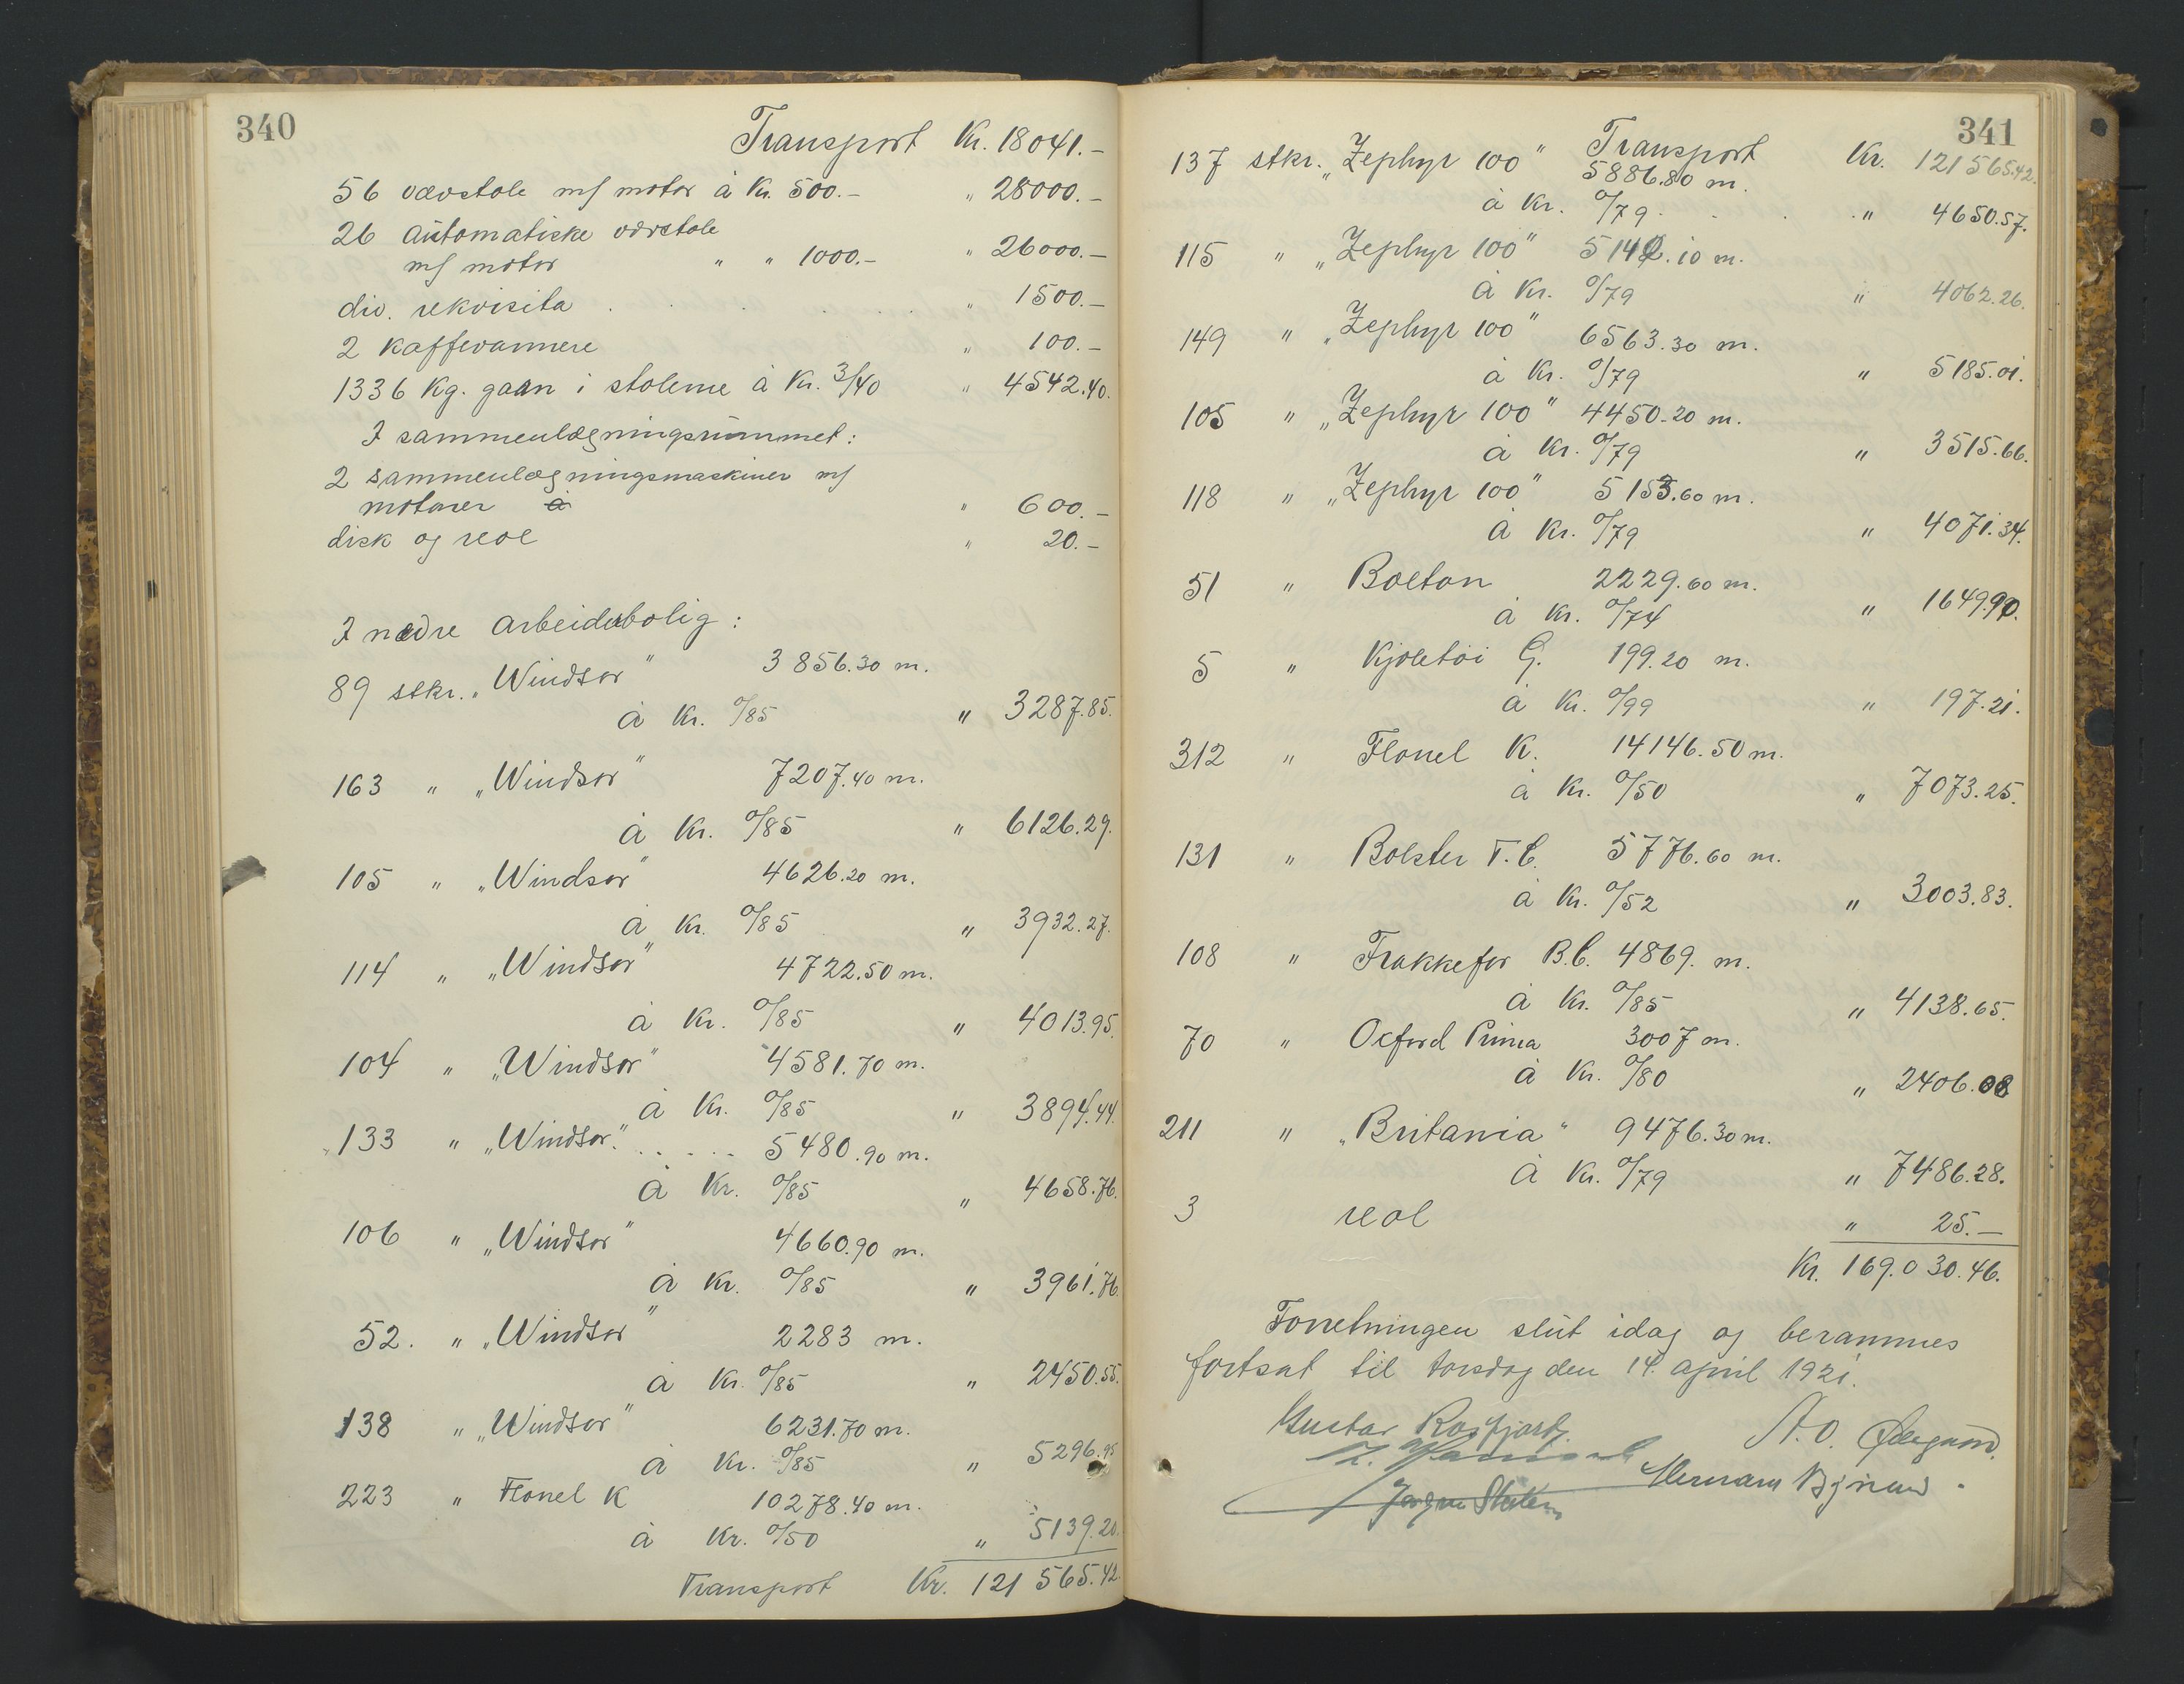 340
Transport Kr. 18041.-
56 vævstole m/ motor à Kr. 500.- " 28000.-
26 automatiske vævstole
m/ motor " " 1000.- " 26000.-
div. rekvisita . . . . . " 1500.-
2 kaffevarmere " 100.-
1336 Kg. garn i stolene à Kr. 3/40 " 4542.40.
I sammenlægningsrummet:
2 sammenlægningsmaskiner m/
motorer à " 600.-
disk og reol " 20.-
I nedre arbeiderbolig:
89 stkr. „Windsor" 3856.30 m.
à Kr. 0/85 " 3287.85.
163 " „Windsor" 7207.40 m.
à Kr. 0/85 " 6126.29.
105 " „Windsor" 4626.20 m.
à Kr. 0/85 " 3932.27.
114 " „Windsor" 4722.50 m.
à Kr. 0/85 " 4013.95.
104 " „Windsor" 4581.70 m.
à Kr. 0/85 " 3894.44.
133 " „Windsor". . . . . 5480.90 m.
à Kr. 0/85 " 4658.76.
106 " „Windsor" 4660.90 m.
à Kr. 0/85 " 3961.76.
52. " „Windsor" 2283 m.
à Kr. 0/85 " 2450.55.
138 " „Windsor" 6231.70 m.
à Kr. 0/85 " 5296.95
223 " Flonel K 10278.40 m.
à Kr. 0/50 " 5139.20.
Transport Kr. 121 565.42.
341
Transport Kr. 121 565.42.
137 stkr. „Zephyr 100" 5886.80 m.
à Kr. 0/79 . . . . " 4650.57.
115 " „Zephyr 100" 5142.10 m.
à Kr. 0/79 " 4062.26.
149 " „Zephyr 100" 6563.30 m.
à Kr. 0/79 " 5185.01.
105 " „Zephyr 100" 4450.20 m.
à Kr. 0/79 " 3515.66.
118 " „Zephyr 100" 5153.60 m.
à Kr. 0/79 " 4071.34.
51 " Bolton 2229.60 m.
à Kr. 0/74 " 1649.90.
5 " Kjoletöi G. 199.20 m.
à Kr. 0/99 " 197.21.
312 " Flonel K. 14146.50 m.
à Kr. 0/50 " 7073.25.
131 " Bolster T.C. 5776.60 m.
à Kr. 0/52 " 3003.83.
108 " Frakkefor B.C. 4869. m.
à Kr. 0/85 " 4138.65.
70 " Oxford Prima 3007 m.
à Kr. 0/80 " 2406.08
211 " „Britania" 9476.30 m.
à Kr. 0/79 " 7486.28.
3 reol " 25.-
Kr. 169.030.46.
Forretningen slut idag og berammes
fortsat til torsdag den 14. april 1921.
Gustav A.O. Ødegaard.
Herman
Jørgen